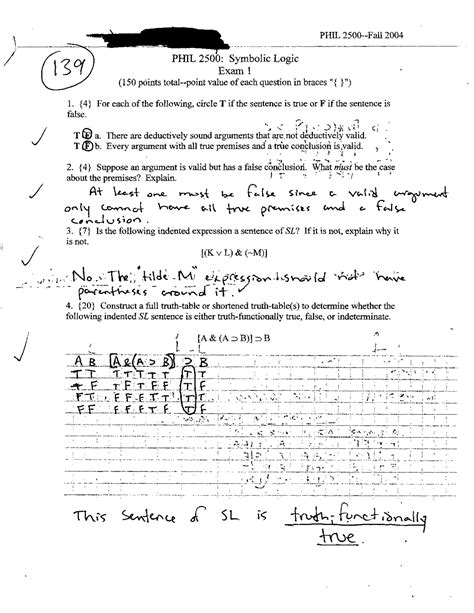 PHIL 2500--Fall 2004
139
PHIL 2500: Symbolic Logic
Exam 1
(150 points total--point value of each question in braces "{ }")
1. {4} For each of the following, circle T if the sentence is true or F if the sentence is
false.
T F a. There are deductively sound arguments that are not deductively valid.
T F b. Every argument with all true premises and a true conclusion is valid.
2. {4} Suppose an argument is valid but has a false conclusion. What must be the case
about the premises? Explain.
At least one must be false since a valid argument
only cannot have all true premises and a false
conclusion.
3. {7} Is the following indented expression a sentence of SL? If it is not, explain why it
is not.
[(K ∨ L) & (~M)]
No. The "tilde M" expression should not have
parentheses around it.
4. {20} Construct a full truth-table or shortened truth-table(s) to determine whether the
following indented SL sentence is either truth-functionally true, false, or indeterminate.
[A & (A ⊃ B)] ⊃ B
A B [A & (A ⊃ B)] ⊃ B
T T T T T T T T T
T F T F T F F T F
F T F F F T T T T
F F F F F T F T F
This sentence of SL is truth-functionally
true.